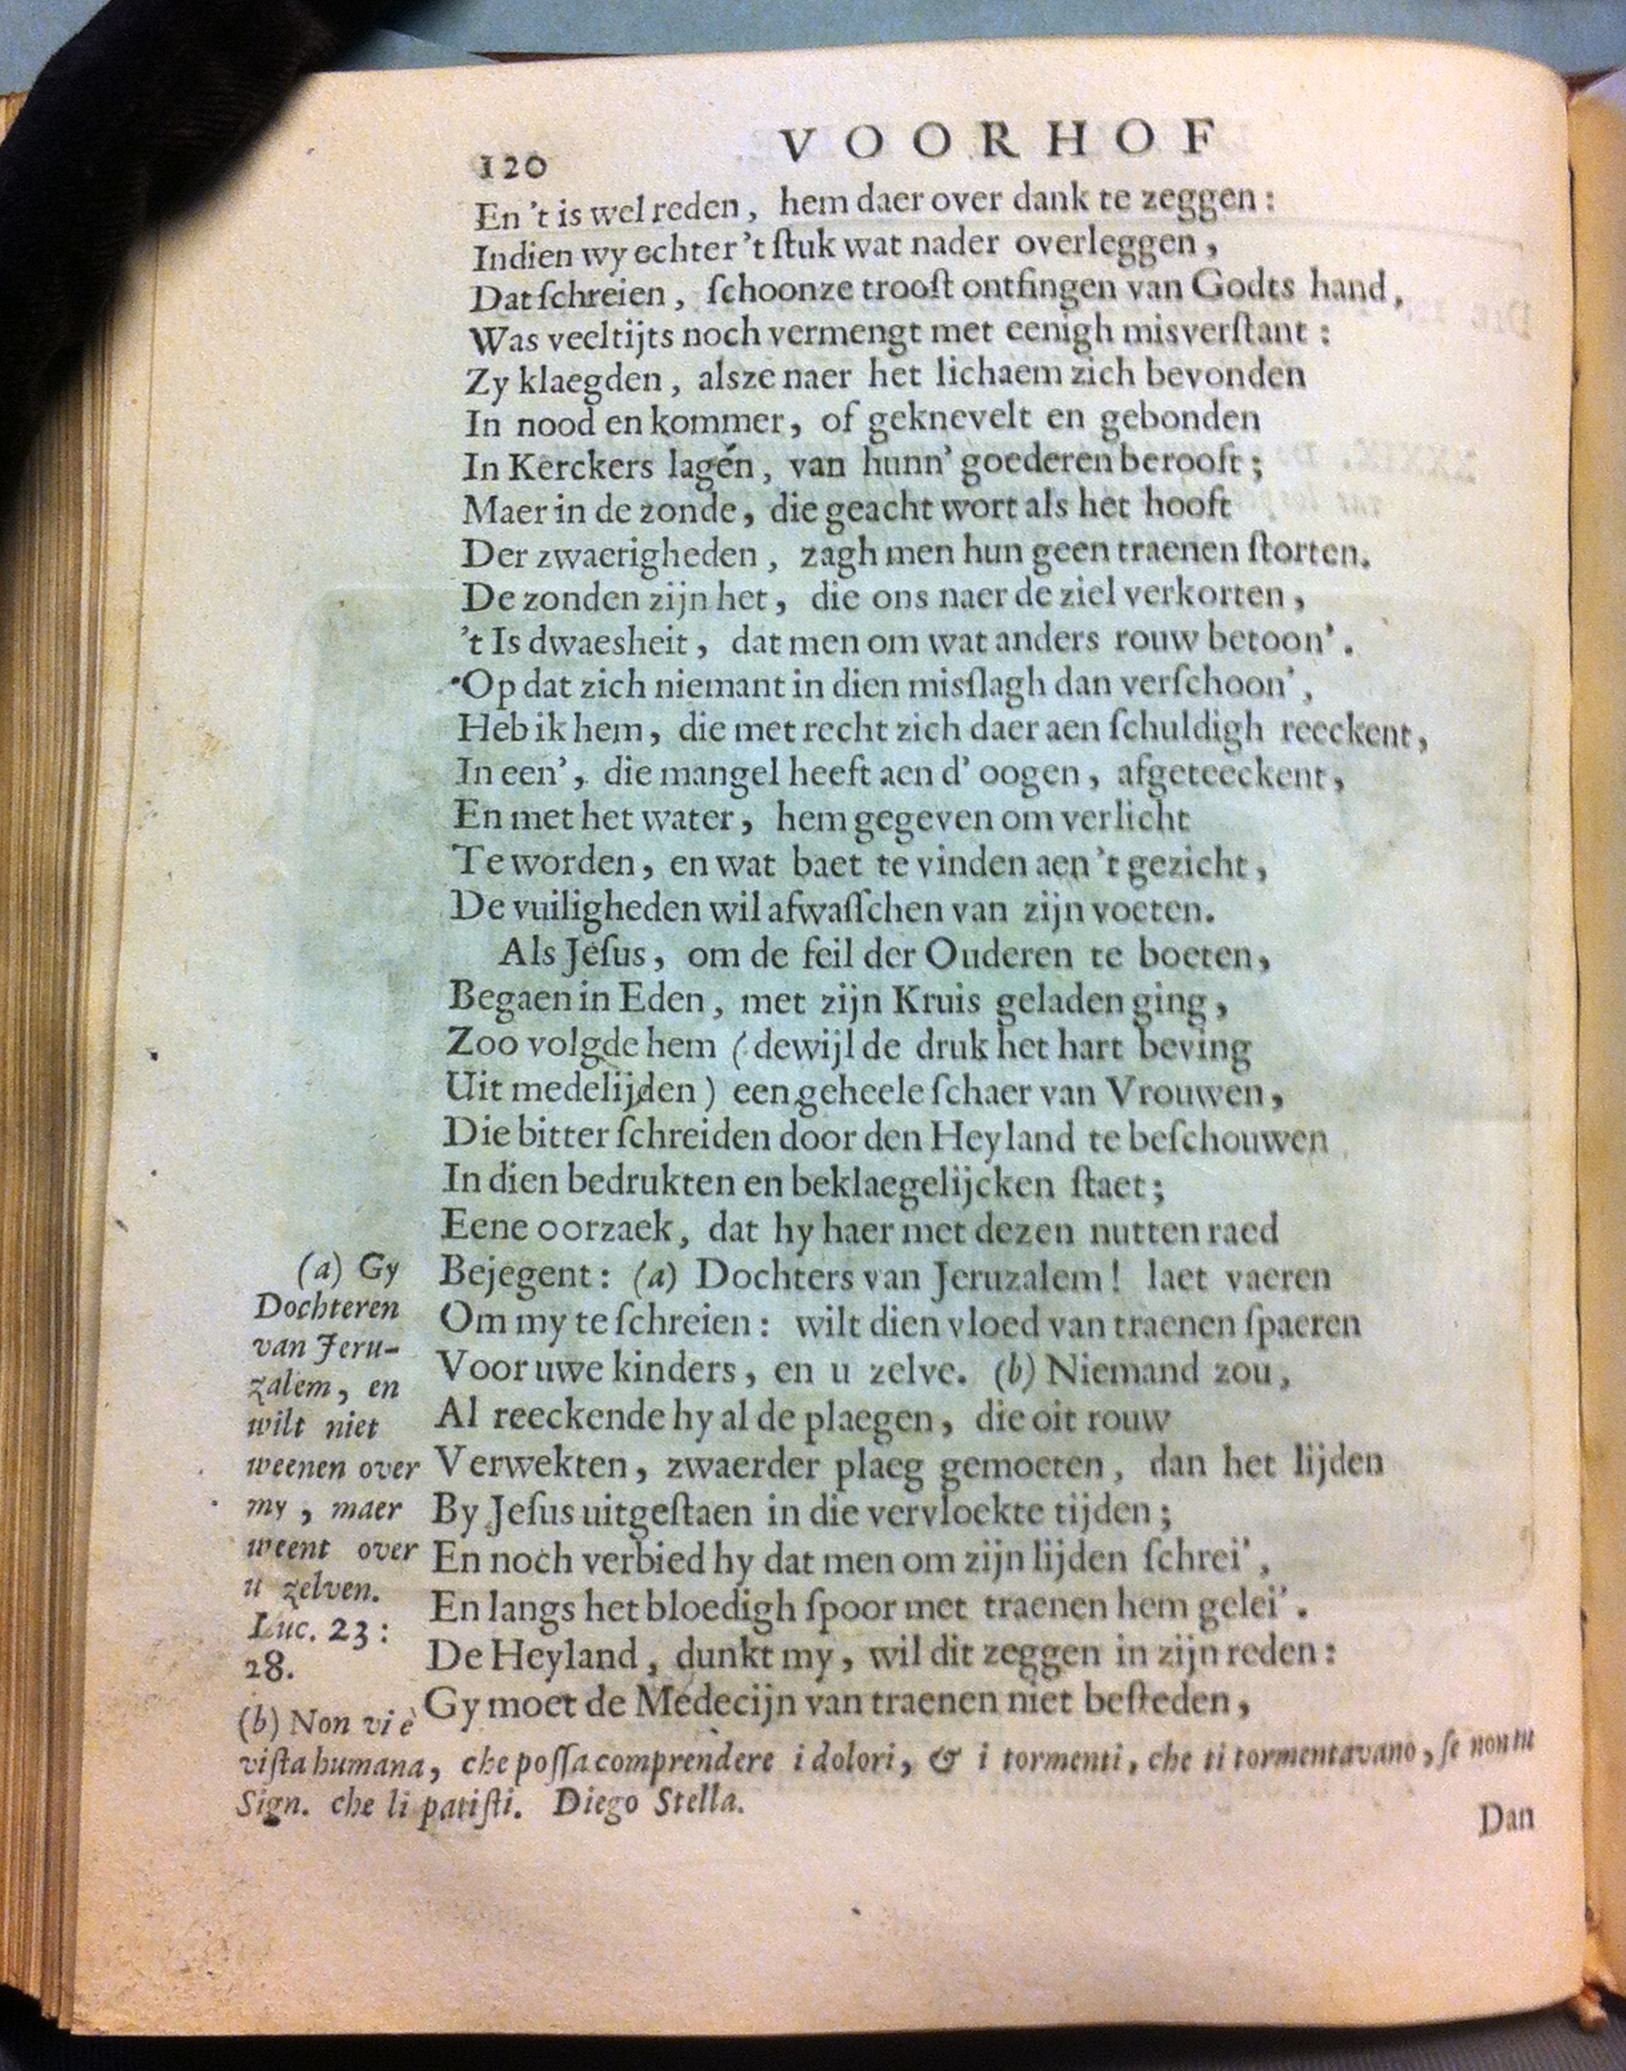 120 VOORHOF
En 't is wel reden, hem daer over dank te zeggen:
Indien wy echter 't ſtuk wat nader overleggen,
Dat ſchreien, ſchoonze trooſt ontfingen van Godts hand,
Was veeltijts noch vermengt met eenigh misverſtant:
Zy klaegden, alsze naer het lichaem zich bevonden
In nood en kommer, of geknevelt en gebonden
In Kerckers lagen, van hunn' goederen berooft;
Maer in de zonde, die geacht wort als het hooft
Der zwaerigheden, zagh men hun geen traenen ſtorten.
De zonden zijn het, die ons naer de ziel verkorten,
't Is dwaesheit, dat men om wat anders rouw betoon'.
Op dat zich niemant in dien misſlagh dan verſchoon',
Heb ik hem, die met recht zich daer aen ſchuldigh reeckent,
In een', die mangel heeft aen d' oogen, afgeteeckent,
En met het water, hem gegeven om verlicht
Te worden, en wat baet te vinden aen 't gezicht,
De vuiligheden wil afwaſſchen van zijn voeten.
Als Jeſus, om de feil der Ouderen te boeten,
Begaen in Eden, met zijn Kruis geladen ging,
Zoo volgde hem (dewijl de druk het hart beving
Uit medelijden) een geheele ſchaer van Vrouwen,
Die bitter ſchreiden door den Heyland te beſchouwen
In dien bedrukten en beklaegelijcken ſtaet;
Eene oorzaek, dat hy haer met dezen nutten raed
Bejegent: (a) Dochters van Jeruzalem! laet vaeren
Om my te ſchreien: wilt dien vloed van traenen ſpaeren
Voor uwe kinders, en u zelve. (b) Niemand zou,
Al reeckende hy al de plaegen, die oit rouw
Verwekten, zwaerder plaeg gemoeten, dan het lijden
By Jeſus uitgeſtaen in die vervloekte tijden;
En noch verbied hy dat men om zijn lijden ſchrei',
En langs het bloedigh ſpoor met traenen hem gelei'.
De Heyland, dunkt my, wil dit zeggen in zijn reden:
Gy moet de Medecijn van traenen niet beſteden,
(a) Gy
Dochteren
van Jeru-
zalem, en
wilt niet
weenen over
my, maer
weent over
u zelven.
Luc. 23:
28.
(b) Non vi è
viſta humana, che poſſa comprendere i dolori, & i tormenti, che ti tormentavano, ſe non tu
Sign. che li patiſti. Diego Stella.
Dan